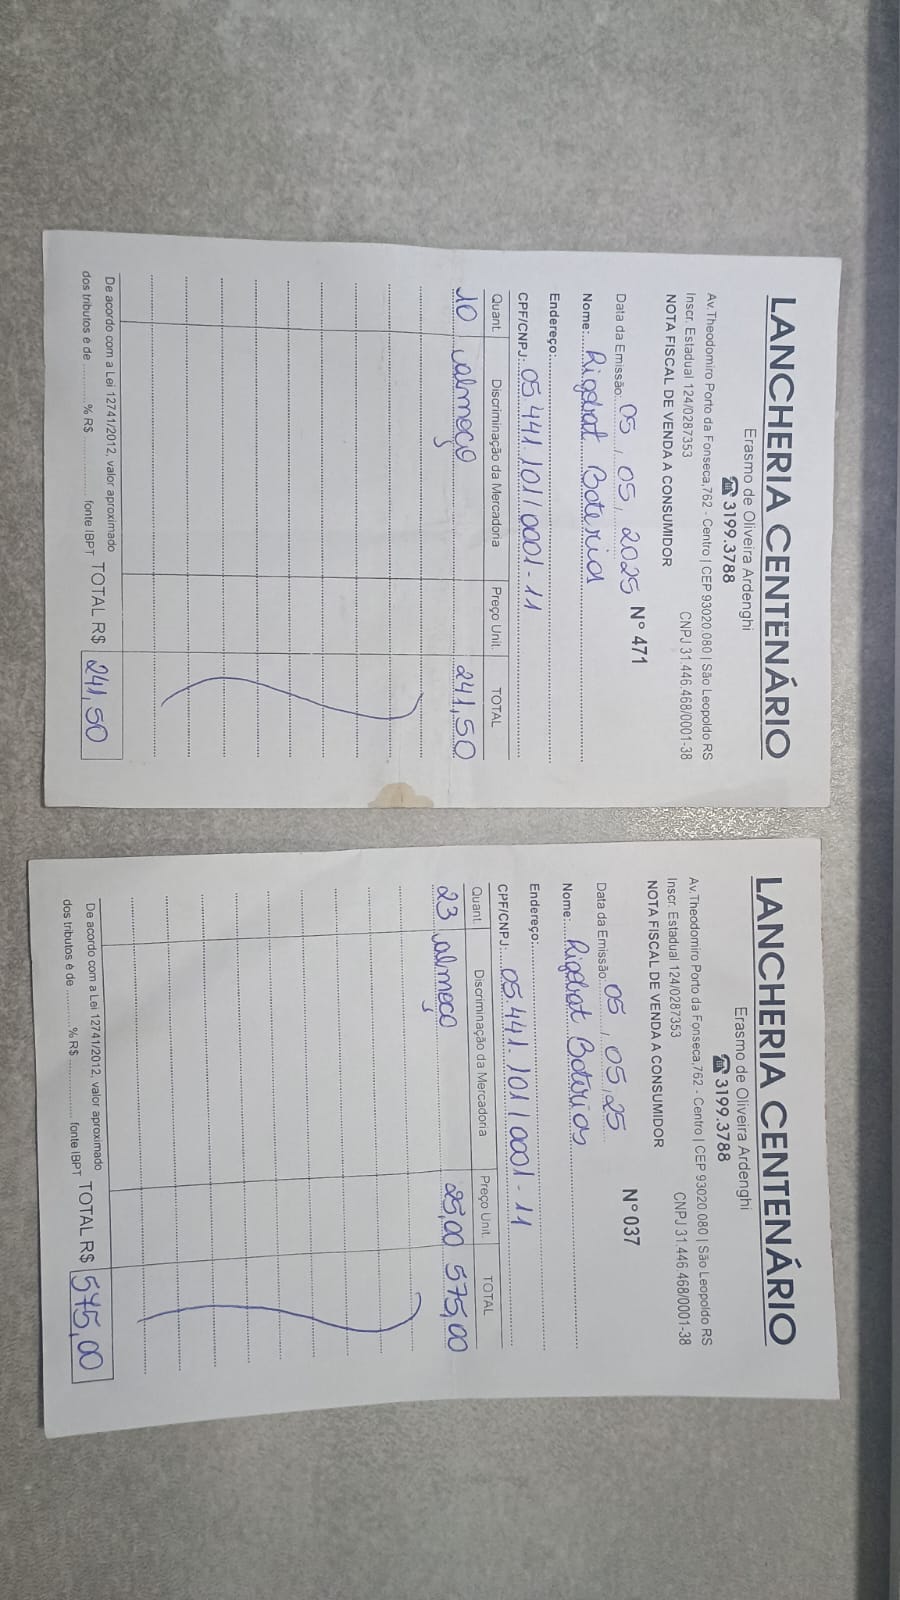 LANCHERIA CENTENÁRIO
Erasmo de Oliveira Ardenghi
☎ 3199.3788
Av.Theodomiro Porto da Fonseca,762 - Centro | CEP 93020.080 | São Leopoldo RS
Inscr. Estadual 124/0287353 CNPJ 31.446.468/0001-38
NOTA FISCAL DE VENDA A CONSUMIDOR
Nº 471
Data da Emissão: 05 / 05 / 2025
Nome: Rigelrat Boteria
Endereço:
CPF/CNPJ: 05 441.101/0001-11
Quant. Discriminação da Mercadoria Preço Unit. TOTAL
10 almoço 241,50
De acordo com a Lei 12741/2012, valor aproximado
dos tributos é de % R$ fonte IBPT TOTAL R$ 241,50
LANCHERIA CENTENÁRIO
Erasmo de Oliveira Ardenghi
☎ 3199.3788
Av.Theodomiro Porto da Fonseca,762 - Centro | CEP 93020.080 | São Leopoldo RS
Inscr. Estadual 124/0287353 CNPJ 31.446.468/0001-38
NOTA FISCAL DE VENDA A CONSUMIDOR
Nº 037
Data da Emissão: 05 / 05 / 25
Nome: Rigelrat Boterias
Endereço:
CPF/CNPJ: 05.441.101/0001-11
Quant. Discriminação da Mercadoria Preço Unit. TOTAL
23 almoço 25,00 575,00
De acordo com a Lei 12741/2012, valor aproximado
dos tributos é de % R$ fonte IBPT TOTAL R$ 575,00